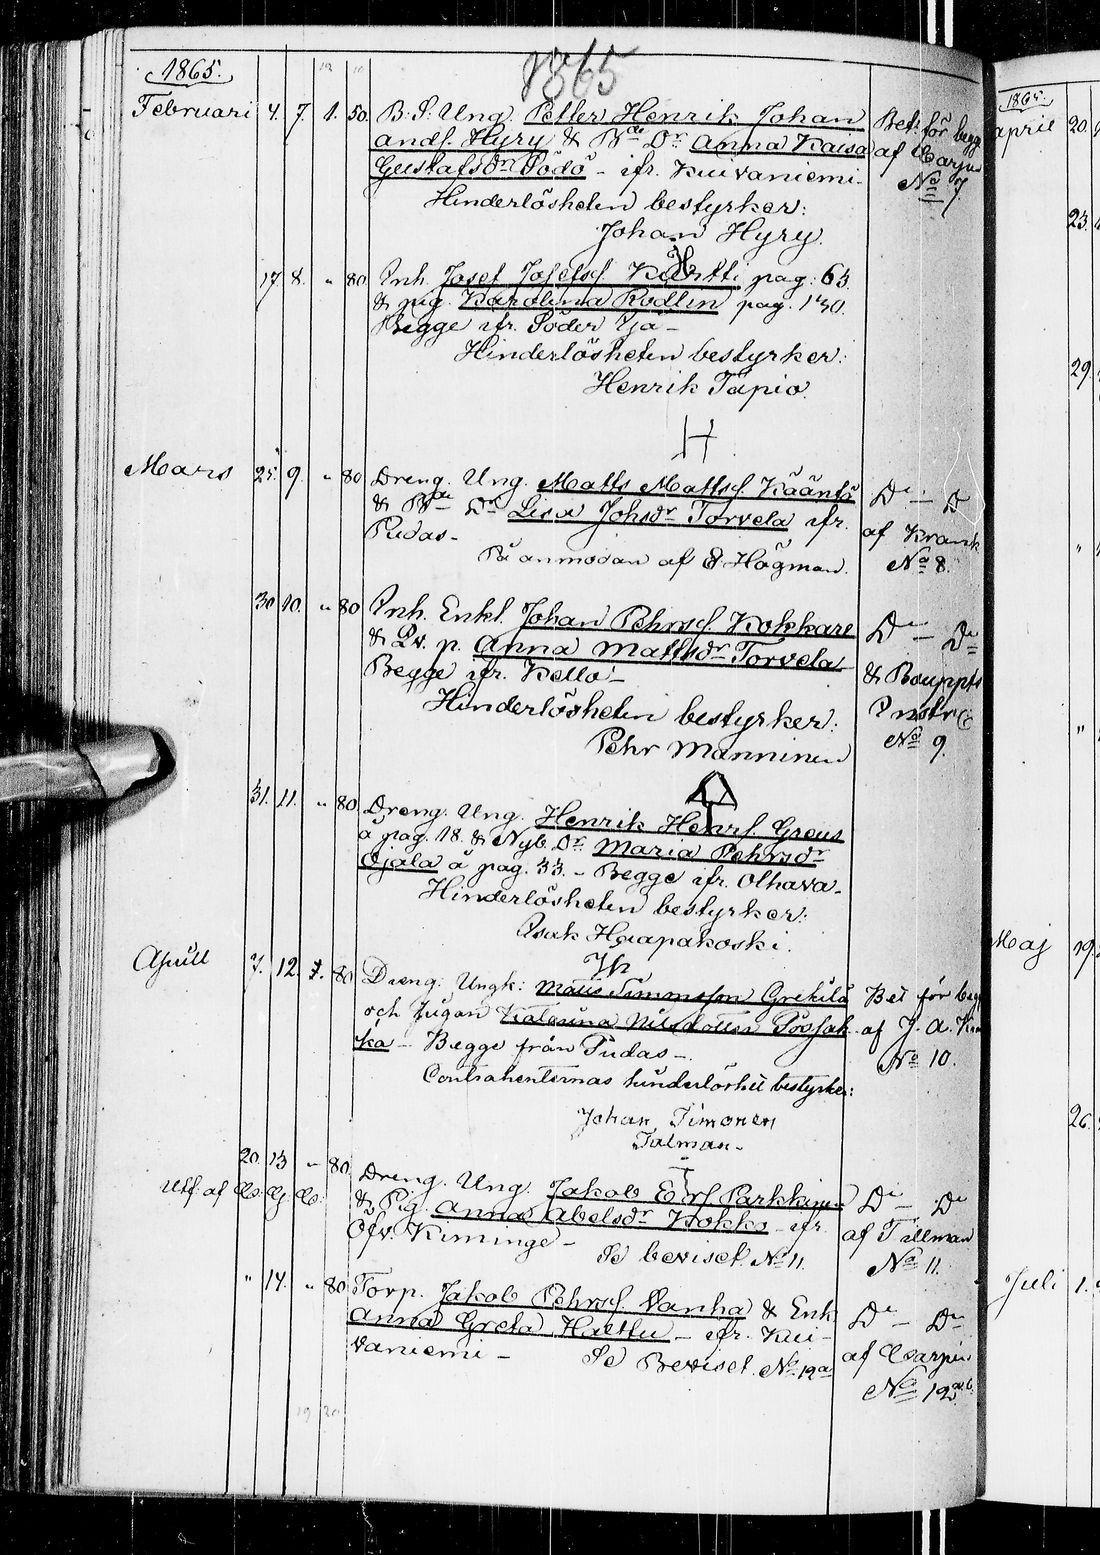 1865
1865.
Februari 4. 7. 1. 50. B. S. Ung. Petter Henrik Johan
andss. Hyry & Bde Dr Anna Kaisa
Gustafsdr Södö - ifr. Kuivaniemi.
Bet. för begg
af Carpn
No 7
Hinderlösheten bestyrker:
Johan Hyry.
17. 8. " 80. Inh. Josef Josefss. Kurtti pag. 63.
& pig. Karolina Rodlin pag. 130.
Begge ifr. Söder Ijå -
Hinderlösheten bestyrker:
Henrik Tapio.
H
Mars 25. 9. " 80 Dreng. Ung. Matts Mattss. Kääntö
& Bde Dr Lisa Johsdr Torvela ifr.
Pudas -
På anmodan af E Högman.
Do — Do
af Krank
No 8.
30 10. " 80 Inh. Enkl. Johan Pehrss. Kokkare
& Qv. p. Anna Mattsdr Torvela
Begge ifr. Kello -
Hinderlösheten bestyrker:
Pehr Manninen
Do — Do
& Bouppts
Instr
No 9.
31. 11. " 80 Dreng. Ung. Henrik Henrss. Greus
å pag. 18. & Nyb. Dr. Maria Pehrsdr
Ojala å pag. 33. - Begge ifr. Olhava -
Hinderlösheten bestyrker:
Isak Haapakoski.
April 7. 12. 1. 80 Dreng. Ungk: Matts Simonsson Grekilä
och Pigan Katarina Nilsdotter Possak
ka - Begge från Pudas -.
Contrahenternas hinderlöshet bestyrker:
Johan Timonen
Talman -
Bet för begg
af J. A. K
No 10.
20. 13 " 80. Dreng. Ung. Jakob Erss Parkkinen
Utf. af Co. Cg. Co.
& Pig. Anna Abelsdr Kokko - ifr.
Öfv. Kiminge -
Se beviset No 11.
Do — Do
af Tillman
No 11.
" 14. " 80 Torp. Jakob Pehrss. Vanha & Enk
Anna Greta Haettu - ifr. Kui-
vaniemi -
Se Beviset. No 12 a
Do — Do
af Carpn
No 12 a. b.
19 20
1865.
april 20.
23.
29.
"
"
Maj 19.
26.
Juli 1.